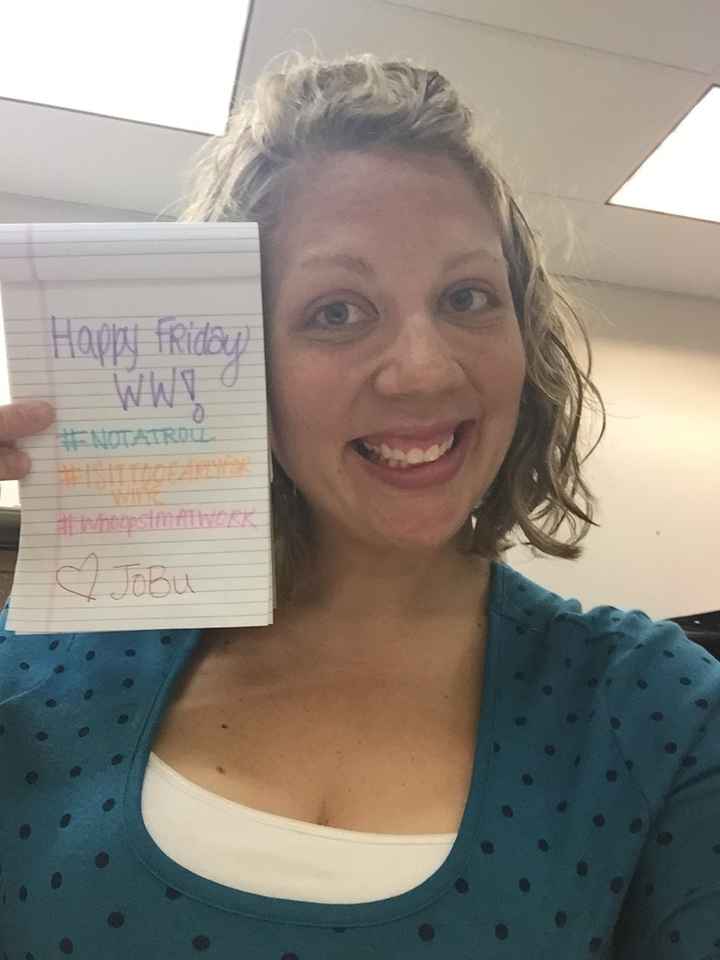 Happy FRiday
WW!
#FNOTATROLL
#ISITTOOEARLYFOR
WINE
#WhoopsIMATWORK
♡ JoBu